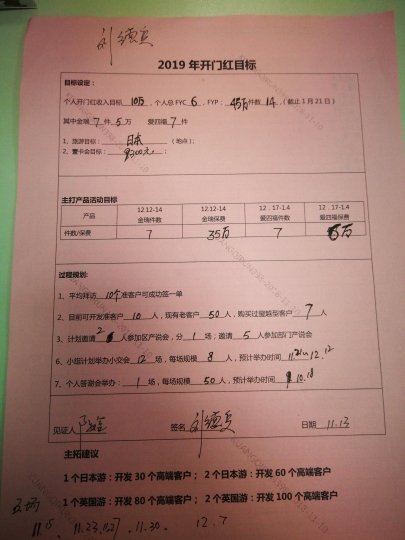 2019 年开门红目标
目标设定:
个人开门红收入目标 10万 ,个人总 FYC 6 , FYP: 45万 件数 14 ,(截止 1 月 21 日)
其中金瑞 7 件 5 万 爱四福 7 件
1、旅游目标: 日本 (地点);
2、置卡会目标: ;
主打产品活动目标
产品 12.12-14 金瑞件数 12.12-14 金瑞保费 12.17-1.4 爱四福件数 12.17-1.4 爱四福保费
件数/保费 7 35万 7 万
过程规划:
1、平均拜访 10个 准客户可成功签一单
2、目前可开发准客户 10 人,现有老客户 50 人,购买过玺越型客户 7 人
3、计划邀请 2 人参加区产说会,分 1 场;邀请 5 人参加部门产说会
6、小组计划举办小交会 12 场,每场规模 8 人,预计举办时间 12.12
7、个人答谢会举办: 1 场,每场规模 50 人,预计举办时间 10.18
见证人 签名 日期 11.13
主拓建议
1 个日本游:开发 30 个高端客户; 2 个日本游:开发 60 个高端客户
1 个英国游:开发 80 个高端客户; 2 个英国游:开发 100 个高端客户
11.23 11.27 . 11.30 . 12.7